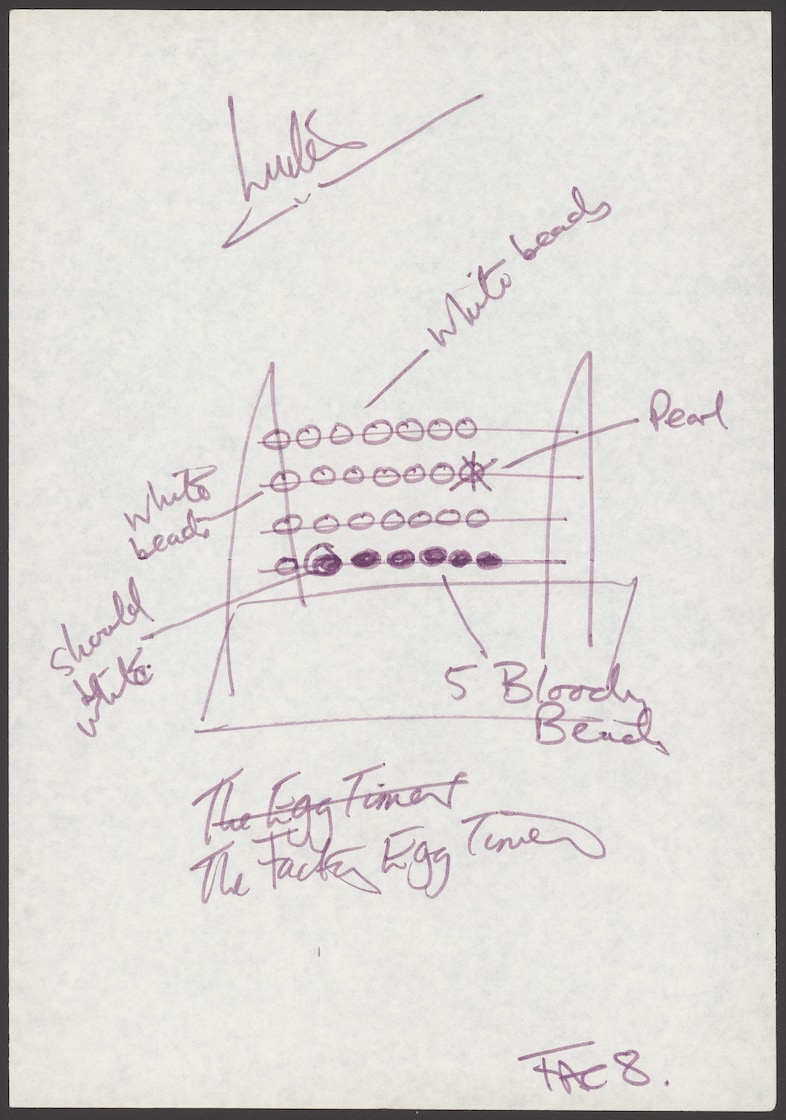 White beads
Pearl
White
beads
Should
be
white.
5 Bloody
Beads
The Egg Timer
The Factory Egg Timer
FAC 8.